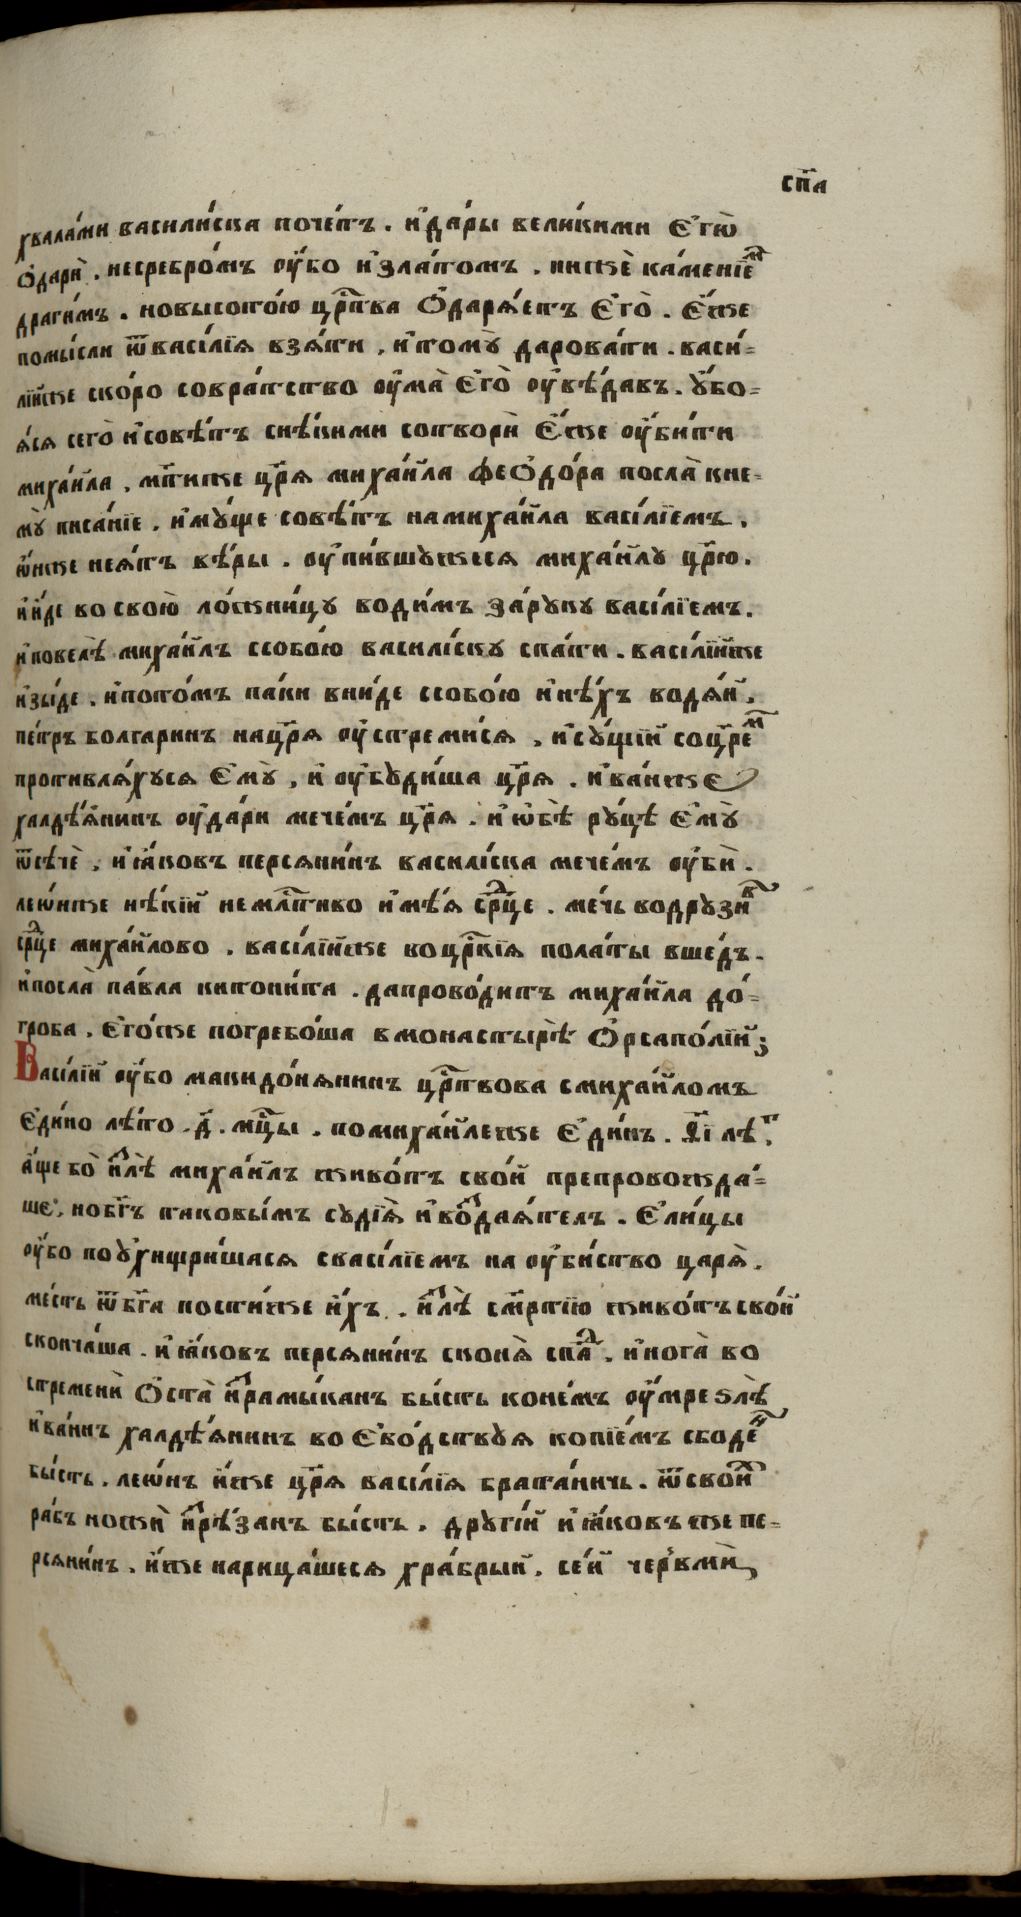 сп҃а
хвала́ми васили́ска поче́тъ . и҆да́ры вели́кими є҆гѡ̀
ѻ҆дарѝ . несребро́мъ ᲂу҆́бо и҆зла́томъ . нижѐ ка́менїеⷨ
драги́мъ . новысото́ю црⷭ҇тва ѻ҆даря́етъ є҆го̀ . є҆́же
помы́сли ѿваси́лїя взя́ти , и҆томꙋ̀ дарова́ти . васи́-
лїи́же ско́ро собра́тство ᲂу҆ма̀ є҆го̀ ᲂу҆вѣ́давъ . ᲂу҆бо-
я́ся сего̀ и҆совѣ́тъ снѣ́кими сотворѝ є҆́же ᲂу҆би́ти
михаи́ла , мт҃иже цр҃я михаи́ла феѻдо́ра посла̀ кне-
мꙋ̀ писа́нїе . и҆мꙋ́ще совѣ́тъ намихаи́ла васи́лїемъ ,
ѡ҆́нже неятъ вѣ́ры . ᲂу҆пи́вшꙋжеся михаи́лꙋ цр҃ю .
и҆и́де во свою̀ ло́жницꙋ води́мъ за́рꙋкꙋ васи́лїемъ .
и҆повелѣ̀ михаи́лъ ссобо́ю васили́скꙋ спа́ти . васи́лїи́же
и҆зы́де . и҆пото́мъ па́ки вни́де ссобо́ю и҆нѣ́хъ водя́й .
пе́тръ болгаринъ нацр҃я ᲂу҆стреми́ся , и҆сꙋ́щїи соцр҃еⷨ
противля́хꙋся є҆мꙋ̀ , и҆ ᲂу҆бꙋди́ша цр҃я . и҆ва́нже
халдѣ́янинъ ᲂу҆да́ри мече́мъ цр҃я . и҆ ѡ҆́бѣ рꙋ́цѣ є҆мꙋ̀
ѿсѣчѐ , и҆ і҆а́ковъ персяни́нъ васили́ска мече́мъ ᲂу҆бѝ .
леѡ́нже нѣ́кїй немлⷭ҇тиво и҆мѣ́я срⷣце . ме́чь водрꙋзиⷡ
срⷣце михаи́лово . васи́лїи́же воцрⷭ҇кїя пола́ты вше́дъ .
и҆посла̀ па́вла китони́та . дапрово́дитъ михаи́ла до́-
гроба . є҆го́же погребо́ша вмонастырѣ̀ ѻ҆рсапо́лїи ;
Васи́лїй ᲂу҆́бо македоня́нинъ црⷭ҇твова смихаи́ломъ
є҆ди́но лѣ́то . д҃ . мцⷭ҇ы . помихаи́леже є҆ди́нъ . ѳ҃і лѣⷮ .
а҆́ще бо̀ ѕлѣ̀ михаи́лъ живо́тъ сво́й препровожда́-
ше . нобг҃ъ таковы́мъ сꙋдїя̀ и҆ воздая́тель . є҆ли́цы
ᲂу҆́бо поᲂу҆хищри́шася сваси́лїемъ на ᲂу҆би́ство царя̀ .
ме́сть ѿбг҃а пости́же и҆́хъ . ѕлѣ̀ смр҃тїю живо́тъ сво́й
сконча́ша . и҆ і҆а́ковъ персяни́нъ сконя̀ спадⷣ , и҆нога̀ во
стремени̂ ѻ҆ста̀ и҆размы́канъ бы́сть коне́мъ ᲂу҆мре ѕлѣ̀
и҆ва́ннъ халдѣ́янинъ во є҆во́дствꙋя копїе́мъ сбодеⷩ
бы́сть . леѡ́нъ и҆́же цр҃я васи́лїя брата́ничь . ѿсвоиⷯ
ра́бъ ножѝ и҆зрѣ́занъ бы́сть . дрꙋгі́й и҆ і҆а́ковъ же пе-
рсяни́нъ . и҆́же нарица́шеся хра́брый . се́й че́рвми